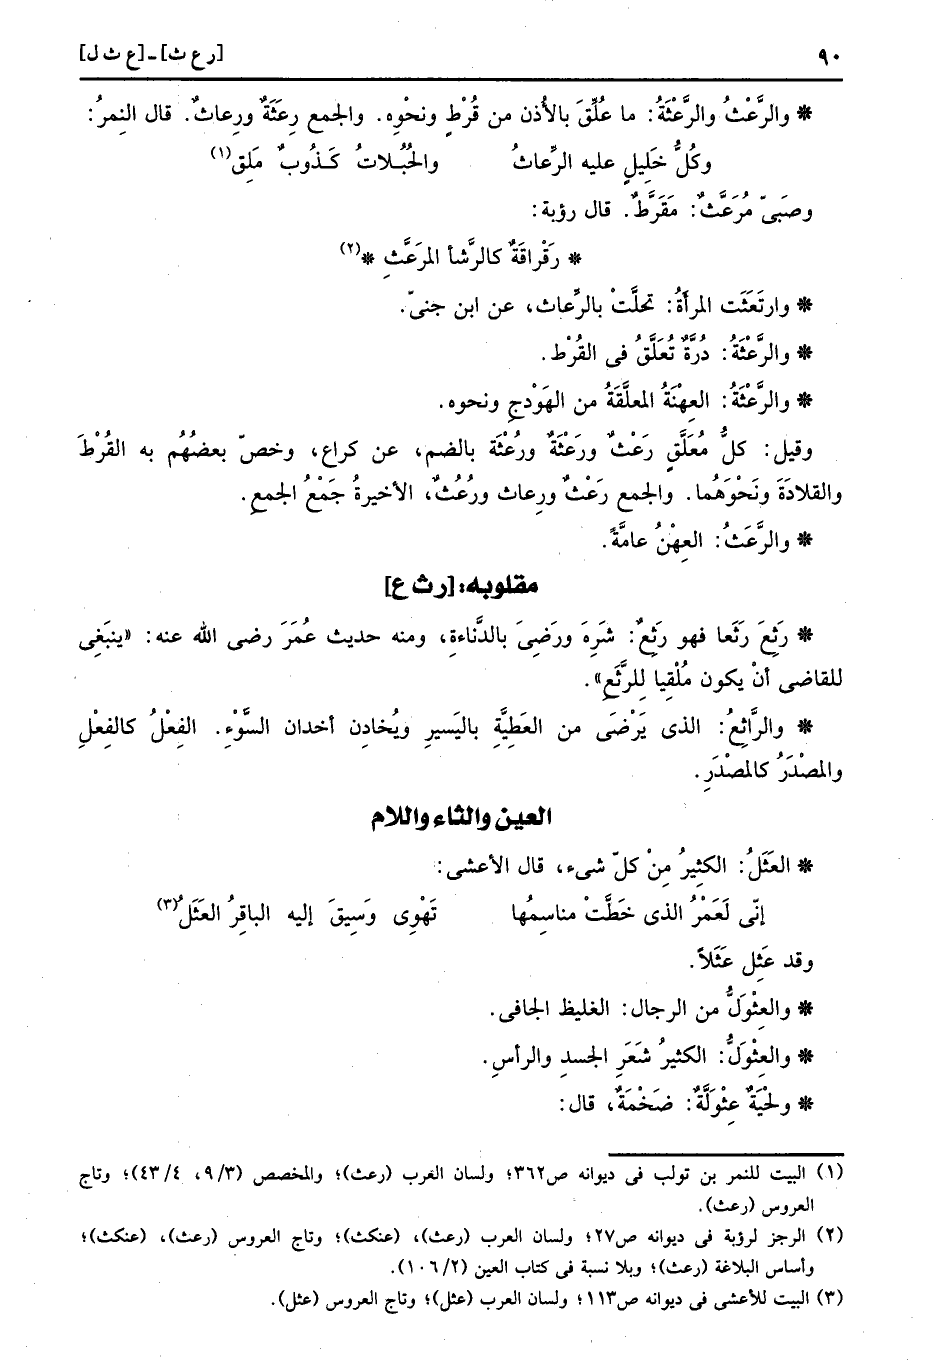 ٩٠ [ر ع ث] - [ع ث ل]
* والرَّعْثُ والرَّعْثَةُ: ما عُلِّقَ بالأُذن من قُرْطٍ ونحوِه. والجمع رِعَثَةٌ ورِعاثٌ. قال النمرُ:
وكُلُّ خَلِيلٍ عليه الرِّعاثُ والحُبُلاتُ كَـذُوبٌ مَلِق(١)
وصَبىّ مُرَعَّثٌ: مَقَرَّطٌ. قال رؤبة:
* رَقْراقَةٌ كالرَّشأ المرَعَّثِ *(٢)
* وارتَعَثَت المرأةُ: تحلَّتْ بالرِّعاث، عن ابن جنىّ.
* والرَّعْثَةُ: دُرَّةٌ تُعَلَّقُ فى القُرْط.
* والرَّعْثَةُ: العِهْنَةُ المعلَّقَةُ من الهَوْدجِ ونحوه.
وقيل: كلُّ مُعَلَّقٍ رَعْثٌ ورَعْثَةٌ ورُعْثَة بالضم، عن كراع، وخصّ بعضُهُم به القُرْطَ
والقلادَةَ ونَحْوَهُما. والجمع رَعْثٌ ورِعاث ورُعُثٌ، الأخيرةُ جَمْعُ الجمعِ.
* والرَّعَثُ: العِهْنُ عامَّةً.
مقلوبه: [ر ث ع]
* رَثِعَ رَثَعا فهو رَثِعٌ: شَرِهَ ورَضِىَ بالدَّناءةِ، ومنه حديث عُمَرَ رضى الله عنه: «ينبَغِى
للقاضى أنْ يكون مُلْقِيا لِلرَّثَعِ».
* والرَّاثِعُ: الذى يَرْضَى من العَطِيَّةِ باليَسيرِ ويُخادِن أخدان السَّوْءِ. الفِعْلُ كالفِعْلِ
والمصْدَرُ كالمصْدَرِ.
العين والثاء واللام
* العَثَلُ: الكثيرُ مِنْ كلّ شىء، قال الأعشى:
إنّى لَعَمْرُ الذى خَطَّتْ مناسِمُها تَهْوِى وَسِيقَ إليه الباقِرُ العَثَلُ(٣)
وقد عَثِل عَثَلاً.
* والعِثْوَلُّ من الرجال: الغليظ الجافى.
* والعِثْوَلُّ: الكثيرُ شَعَرِ الجسدِ والرأسِ.
* ولِحْيَةٌ عِثْوَلَّةٌ: ضَخْمَةٌ، قال:
(١) البيت للنمر بن تولب فى ديوانه ص٣٦٢؛ ولسان العرب (رعث)؛ والمخصص (٩/٣، ٤٣/٤)؛ وتاج
العروس (رعث).
(٢) الرجز لرؤبة فى ديوانه ص٢٧؛ ولسان العرب (رعث)، (عنكث)؛ وتاج العروس (رعث)، (عنكث)؛
وأساس البلاغة (رعث)؛ وبلا نسبة فى كتاب العين (١٠٦/٢).
(٣) البيت للأعشى فى ديوانه ص١١٣؛ ولسان العرب (عثل)؛ وتاج العروس (عثل).